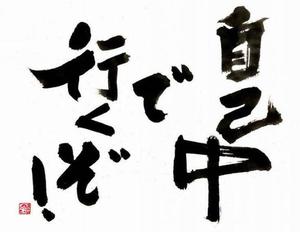 自己中
で
行くぞ!